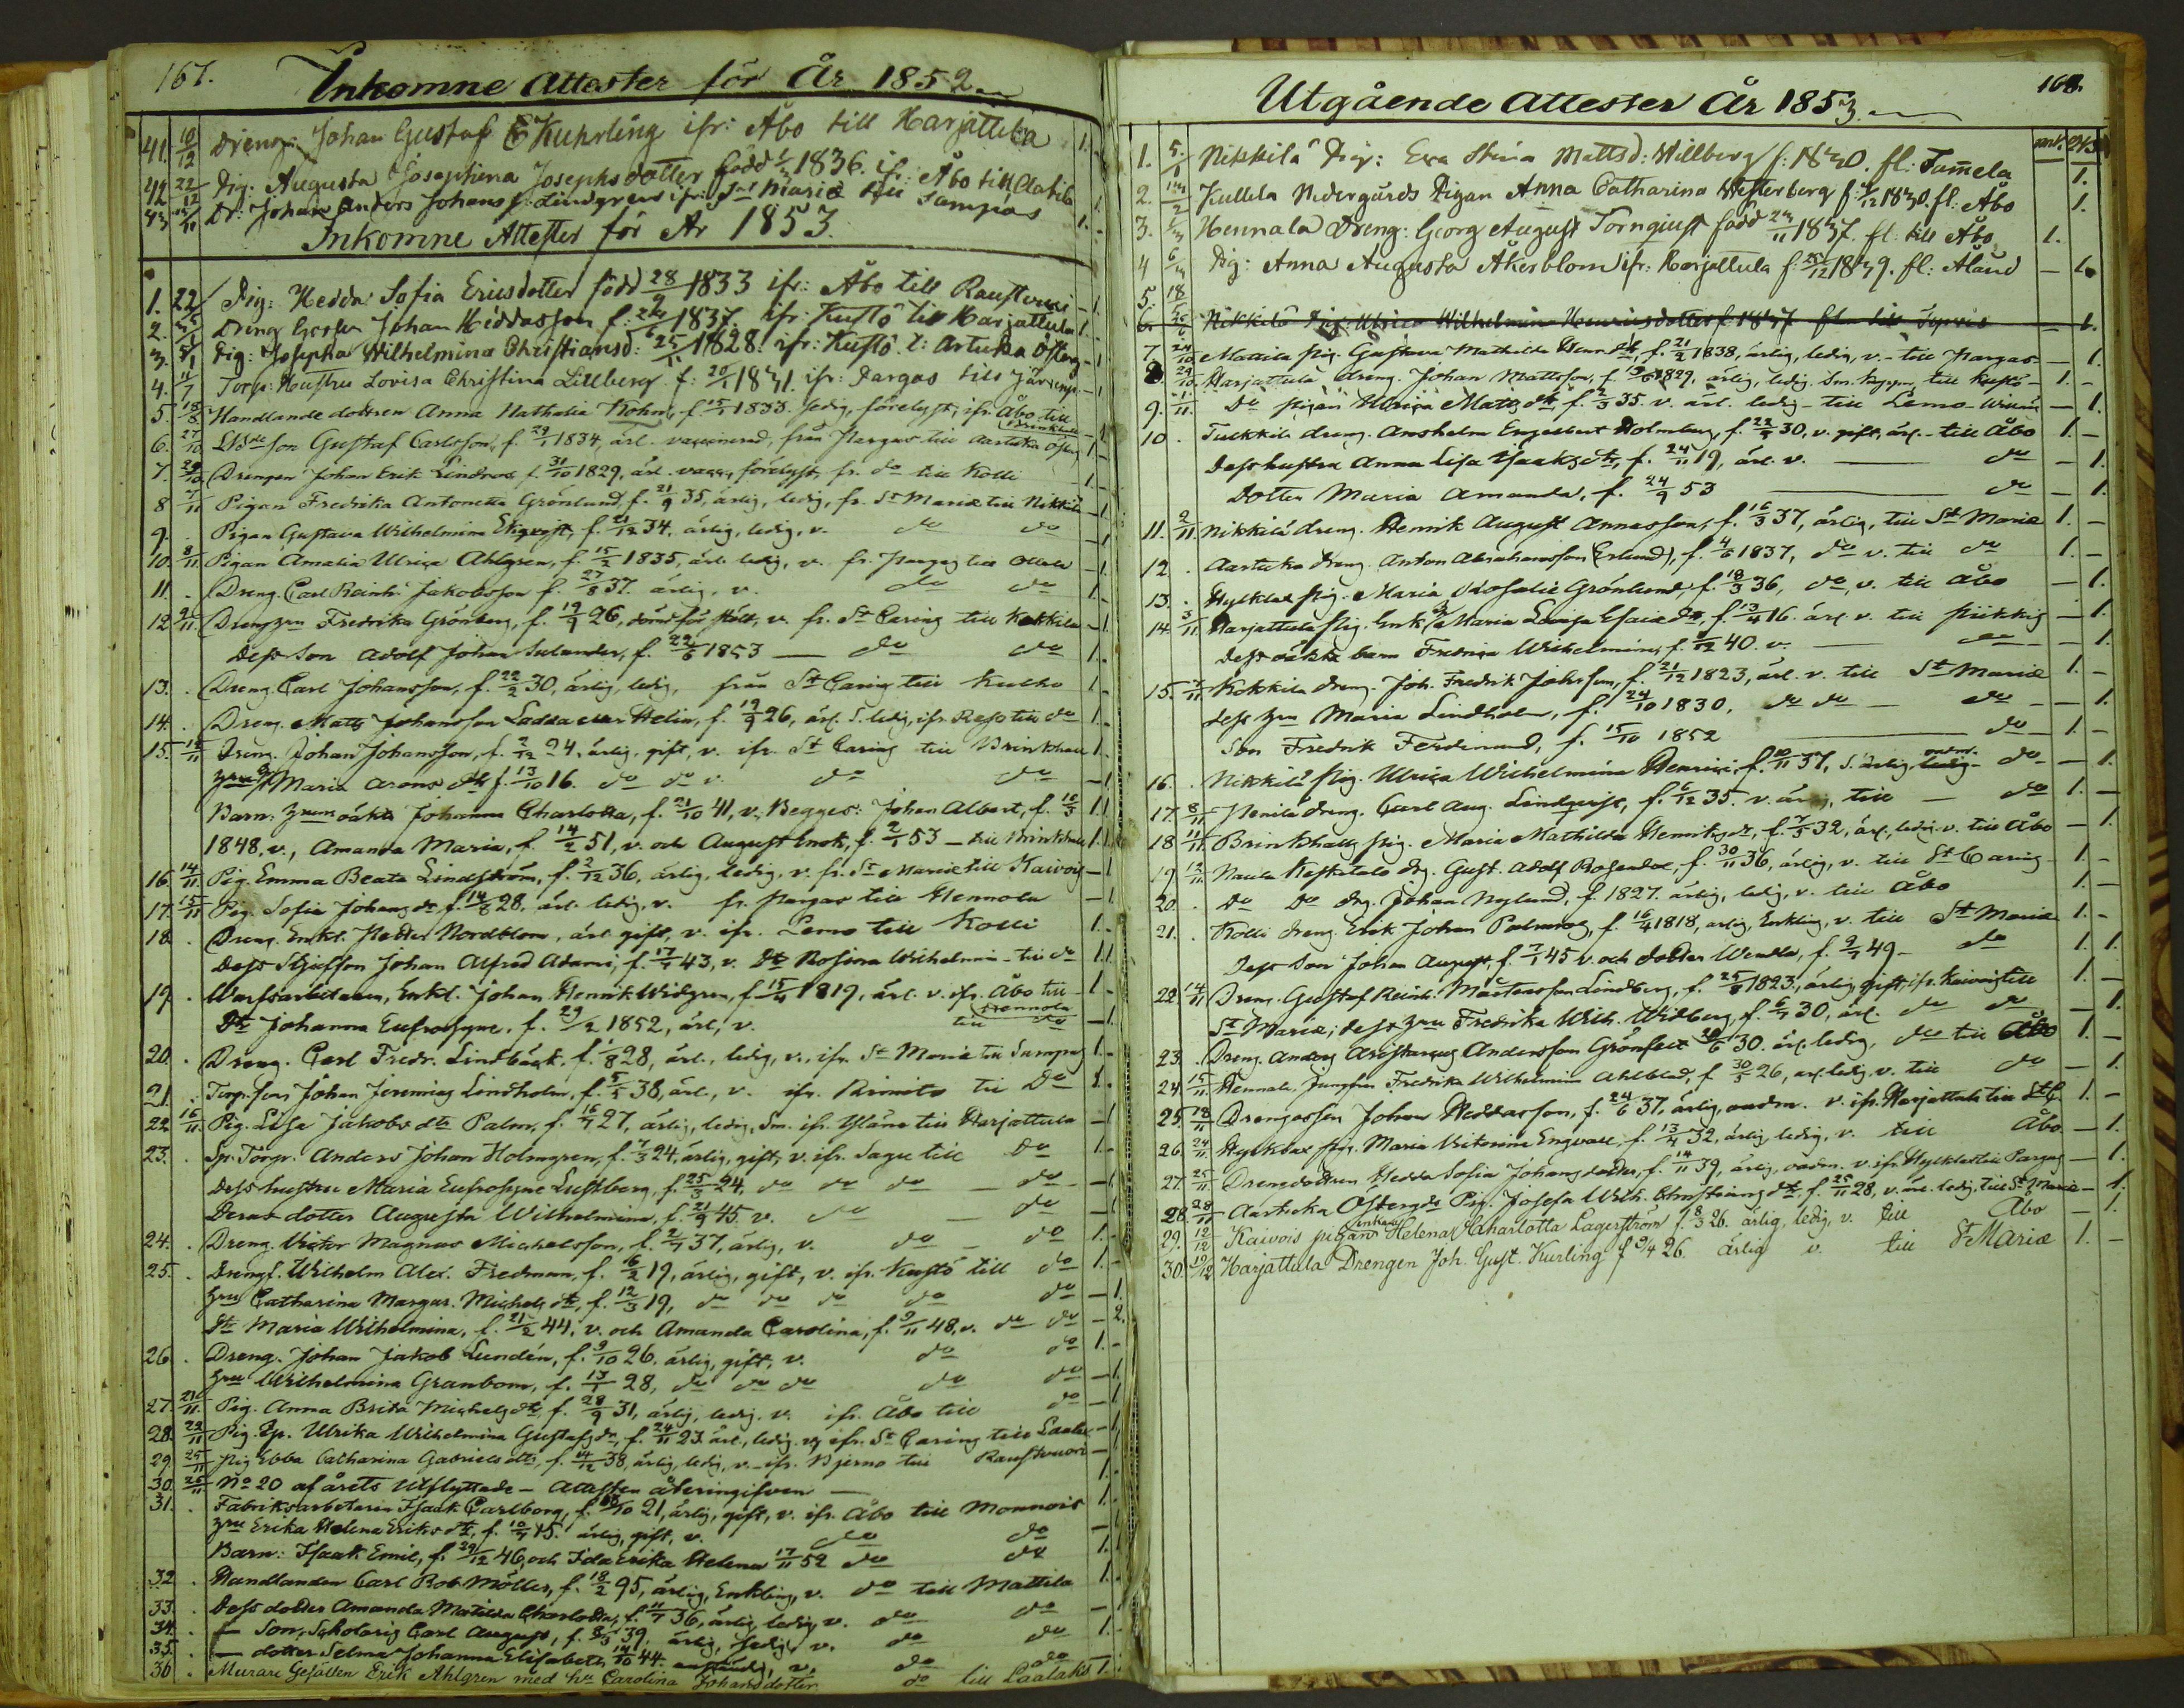 167.
Inkomne Attester för År 1852
41. 10/12 Dreng: Johan Gustaf Kuhrling ifr: Åbo till Harjattula 1.
42 22/12 Pig: Augusta Josephina Josephsdotter född 1836. ifr: Åbo till 1.
43 Dr: Johan Anders Johans f. Lindgren ifr: St Mariæ till Sampas 1.
Inkomne Attester för År 1853.
1. 22/ Pig: Hedda Sofia Ericsdotter född 28/9 1833 ifr: Åbo till Raustvuori - 1.
2. Dreng Gossen Johan Heddasson f: 24/6 1837. ifr: Kustö till Harjattula 1.
3. Pig: Josepha Wilhelmina Christiansd: 25/11 1828. ifr: Kustö. t: Artukka Österg - 1.
4. 11/7 Torp: Hustru Lovisa Christina Lillberg f: 20/1 1831. ifr: Pargas till - 1.
5. 18/8 Handlande dottren Anna Nathalia Köhn, f. 15/5 1833. ledig, förelyst, ifr. Åbo till Brinkhall - 1
6. 27/10 Gustaf Carlsson, f. 29/1 1834, ärl. vaccinerad, från Pargas till Aartukka Österg 1 -
7. 29/10 Drengen Johan Erik Lindroos f. 31/10 1829, ärl. vacc, förelyst, fr. do till Kolli 1 -
8 7/11 Pigan Fredrika Antonetta Grönlund, f. 21/9 35, ärlig, ledig, fr. St Mariæ till Nikkilä - 1
9. . Pigan Gustava Wilhelmina Ekqvist, f. 21/12 34. ärlig, ledig, v. do do - 1
10. 8/11 Pigan Amalia Ulrica Ahlgren, f. 15/2 1835, ärl. ledig, v. fr. Pargas till Ollila - 1
11. . Dreng. Carl Reinh. Jakobsson f. 27/8 37. ärlig, v. do do 1 -
12 9/11 Drengzn Fredrika Grönberg, f. 19/9 26, dömd för stöld, v. fr. St Caring till Kokkila - 1.
Dess Son Adolf Johan Sulander, f. 22/6 1853 — do do 1. -
13. . Dreng. Carl Johansson, f. 22/2 30, ärlig, ledig, från St Caring till Kulho 1 -
14. . Dreng. Matts Johansson Ladda eller Helin, f. 19/9 26, ärl. S. ledig, ifr. Reso till do 1. -
15. 12/11 Dreng. Johan Johansson, f. 2/12 24, ärlig, gift, v. ifr. St Caring till Brinkhall 1. -
Hu Maria Arons dtr f. 13/10 16. do do v. do do - 1
Barn: oäkta Johanna Charlotta, f. 21/10 41, v., Begges: Johan Albert, f. 16/3 1.1
1848, v., Amanda Maria, f. 14/2 51, v. och August Enok, f. 2/1 53 — till Brinkhall 1.1
16. 14/11 Pig. Emma Beata Lindström, f. 2/12 36, ärlig, ledig, v. fr. St Mariæ till Kaivois - 1
17. 15/11 Pig. Sofia Johansdr f. 14/8 28, ärl. ledig, v. fr. Pargas till Hennola - 1
18. . Dreng. Enkl. Petter Nordblom, ärl. gift, v. ifr. Lemo till Kolli 1. -
Dess Stjufson Johan Alfred Adami, f. 17/1 43, v. Dtr Rosina Wilhelmin - till do 1.1
19. . Warfsarbetaren, Enkl. Johan Henrik Widgren, f. 15/4 1819, ärl. v. ifr. Åbo till Hennola 1 -
Dtr Johanna Eufrosyne, f. 29/2 1852, ärl, v. till do - 1.
20. . Dreng. Carl Fredr. Lindbäck, f. 1/8 28, ärl., ledig, v., ifr. St Mariæ till Sampas 1. -
21. . Torp. son Johan Jeremias Lindholm, f. 5/5 38, ärl., v. ifr. Rimito till Do 1. -
22. 16/11 Pig. Lisa Jakobs dtr Palm, f. 16/9 27, ärlig, ledig, Sm. ifr. Yläne till Harjattula - 1
23. . Sp. Torp. Anders Johan Holmgren, f. 7/3 24, ärlig, gift, v. ifr. Sagu till Do 1. -
Dess hustru Maria Eufrosyne Luftberg, f. 25/3 24, do do do — do - 1
Deras dotter Augusta Wilhelmina, f. 21/9 45. v. do — do - 1
24. . Dreng. Victor Magnus Michelsson, f. 2/7 37, ärlig, v. do — do 1. -
25. . Drengf. Wilhelm Alex. Fredman, f. 16/2 19, ärlig, gift, v. ifr. Kustö till do 1. -
Hu Catharina Margar. Michels dtr, f. 12/3 19, do do do do do - 1.
Dtr Maria Wilhelmina, f. 21/2 44, v. och Amanda Carolina, f. 9/11 48, v. do do - 2.
26. . Dreng. Johan Jakob Lundén, f. 9/10 26. ärlig, gift, v. do do 1. -
Hu Wilhelmina Granbom, f. 13/1 28, do do do do do - 1
27. 21/11. Pig. Anna Brita Michelsdtr, f. 28/9 31, ärlig, ledig, v. ifr. Åbo till do - 1
28. 22/11 Pig. Ulrika Wilhelmina Gustafsdr, f. 24/11 23. ärl., ledig, v, ifr. St Caring till - 1
29. 25/11 Pig Ebba Catharina Gabriels dtr, f. 14/12 38, ärlig, ledig, v. ifr. Bjerno till Raustvuori - 1
30. 26/11 No 20 af årets utflyttade — Attesten återingifven — 1. -
31. . Fabriksarbetaren Isaak Carlborg, f. 10 21, ärlig, gift, v. ifr. Åbo till Monnois 1. -
Hu Erika Helena Eriks dtr, f. 10/7 15. ärlig, gift, v. do do - 1
Barn: Isaak Emil, f. 29/12 46, och Ida Erika Helena 17/11 52 do do 1.1
32. . Handlanden Carl Rob. Möller, f. 18/2 95, ärlig, Enkling, v. do till Mattila 1. -
33. . Dess dotter Amanda Matilda Charlotta, f. 11/7 36, ärlig, ledig, v. do do - 1
34. . — Son, Scholaris Carl August, f. 8/5 39, ärlig, ledig, v. do do 1. -
35. . — dotter Selma Johanna Elisabeth 14/10 44. v. do do
36 . Murare Gesällen Erik Ahlgren med hu Carolina Johansdotter do till Laalaks 1.
168.
Utgående Attester År 1853.
1. 5/1 Nikkilä Pig: Eva Stina Mattsd: Willberg f: 1830. fl: Tammela 1.
2. Kullila Nedergårds Pigan Anna Catharina Westerberg f: /12 1830. fl: Åbo 1.
3. Hennala Dreng: Georg August Tornquist född 23/11 1837. fl: till Åbo 1.
4 6/3 Pig: Anna Augusta Åkerblom ifr: Harjattula f: 25/12 1839. fl: Åland — 1.
5. 18
6. Nikkilä Pig: Ulrica Wilhelmina Henricsdotter f 1837 fl. till — 1.
7. 24/10 Mattila Pig. Gustava Mathilda Henr dtr, f. 21/2 1838, ärlig, ledig, v. — till Pargas — 1.
8 29/10 Harjattula dreng. Johan Mattsson, f. 1829, ärlig, ledig. till Kustö — 1. -
9. 1/11. Do pigan Ulrica Mats dtr f. 2/3 35. v. ärl. ledig — till Lemo — 1.
10. . Tuckkila dreng. Anshelm Engelbert Holmberg, f. 22/5 30, v. gift, ärl. — till Åbo 1. -
Dess hustru Anna Lisa Isaksdtr, f. 24/11 19, ärl. v. — do — 1.
Dotter Maria Amanda, f. 24/9 53 — do — 1.
11. 2/11. Nikkilä dreng. Henrik August Annasson, f. 16/3 37, ärlig, till St Mariæ 1. -
12 . Aartukka dreng. Anton Abrahamsson (Erlund), f. 4/6 1837, do v. till do 1. -
13. . Hylkilax pig. Maria Rosalie Grönlund, f. 18/3 36, do, v. till Åbo — 1.
14. 3/11 Harjattula pig. Enk. Maria Lovisa Esaiæ dtr, f. 13/4 16. ärl. v. till Piikkis — 1.
Dess oäkta barn Fredrica Wilhelmina, f. /12 40. v. — do — 1.
15. 7/11 Kokkila dreng. Joh. Fredrik Johnsson, f. 21/12 1823, ärl. v. till St Mariæ 1. -
dess hu Maria Lindholm, f. 24/10 1830, do do — do — 1.
Son Fredrik Ferdinand, f. 15/10 1852 — do 1. -
16. . Nikkilä pig. Ulrica Wilhelmina Henrici, f. 10/11 37, S. ärlig, ledig oadm. do — 1.
17. 8/11 Henila dreng. Carl Aug. Lindqvist, f. 6/12 35. v. ärlig, till — do 1. -
18 11/11 Brinkhalls pig. Maria Mathilda Henriksdr, f. 7/5 32, ärl., ledig, v. till Åbo — 1.
19 12/11 Naula Keskitalo drg. Gust. Adolf Rosendal, f. 30/11 36, ärlig, v. till St Caring 1. -
20. . Do Do drg. Johan Nylund, f. 1827. ärlig, ledig, v. till Åbo 1. -
21. . Kolli dreng. Erik Johan Palmros, f. 16/4 1818, ärlig, Enkling, v. till St Mariæ 1. -
Dess Son Johan August, f. 7/1 45 v. och dotter Wendla, f. 9/7 49 — do 1. 1.
22. 14/11 Dreng. Gustaf Reinh. Mårtensson Lindberg, f. 25/8 1823, ärlig, gift, ifr. Kaivois till 1. -
St Mariæ; dess hu Fredrika Wilh. Widberg, f. 6/7 30, ärl. do do — 1.
23. . Dreng. Anders Aristarcus Andersson Grönqvist 30/6 30. ärl. ledig, do till Åbo 1. -
24 15/11 Hennala. Jungfrun Fredrika Wilhelmina Ahlblad, f. 30/5 26, ärl. ledig. v. till do — 1.
25. 18/11 Drengasson Johan Heddasson, f. 24/6 37, ärlig, oadm. v. ifr. Harjattula till St C. 1. -
26. 24/11. Hylkilax pig. Maria Vitorina Engvall, f. 13/4 32, ärlig, ledig, v. till Åbo — 1.
27. 25/11 Drengdottren Hedda Sofia Johansdotter, f. 14/11 39, ärlig, oadm. v. ifr. Hylkilax till Pargas — 1.
28. 28/11 Aartukka Ostergds Pig. Josefa Wilh. Christians dtr f. 25/11 28, v. ärl. ledig, till St Mariæ — 1.
29. 12/12 Kaivois pigan enkan Helena Charlotta Lagerström f. 8/3 26. ärlig, ledig, v. till Åbo — 1.
30. 19/12 Harjattula Drengen Joh. Gust. Kurling f 9/4 26. ärlig v. till St Mariæ 1. -